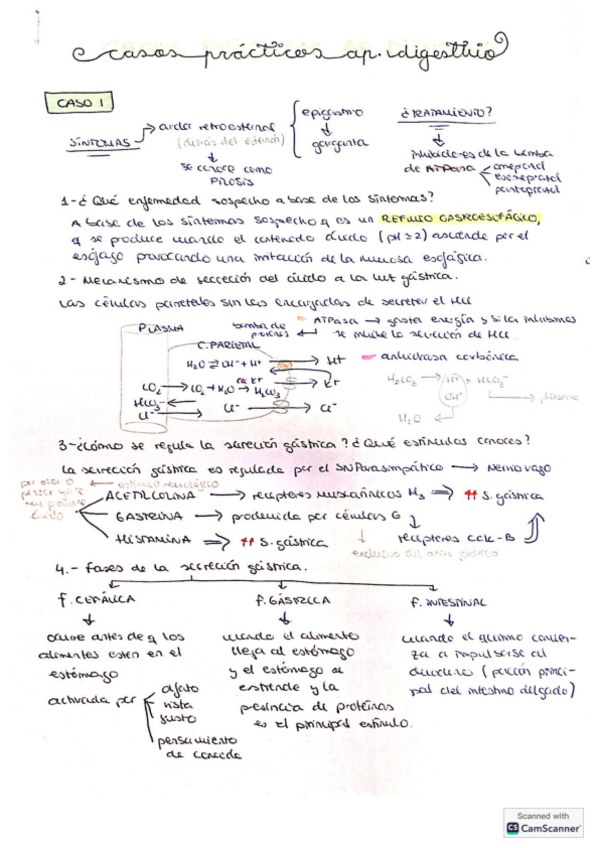 casos prácticos ap. digestivo
CASO 1
SÍNTOMAS → ardor retroesternal (detrás del esternón)
↓
se conoce como PIROSIS
epigastrio
↓
garganta
¿TRATAMIENTO?
↓
inhibidores de la bomba
de ATPasa
omeprazol
esomeprazol
pantoprazol
1-¿Qué enfermedad sospecho a base de los síntomas?
A base de los síntomas sospecho q es un REFLUJO GASTROESOFÁGICO,
q se produce cuando el contenido ácido (pH ≥ 2) asciende por el
esófago provocando una irritación de la mucosa esofágica.
2- Mecanismo de secreción del ácido a la luz gástrica.
Las células parietales son las encargadas de secretar el HCl
PLASMA
bomba de protones
ATPasa → gasta energía y si la inhibimos
se inhibe la secreción de HCl.
C. PARIETAL
anhidrasa carbónica
H₂O ⇌ OH⁻ + H⁺ → H⁺
K⁺
CO₂ → CO₂ + H₂O → H₂CO₃
HCO₃⁻
Cl⁻ Cl⁻ → Cl⁻
H₂CO₃ → H⁺ + HCO₃⁻
OH⁻
→ plasma
H₂O
3-¿Cómo se regula la secreción gástrica? ¿Qué estímulos conoces?
La secreción gástrica es regulada por el SNParasimpático → Nervio vago
estímulo neurológico
ACETILCOLINA → receptores muscarínicos M₃ ⇒ ↑↑ S. gástrica
GASTRINA → producida por células G
receptores CCK-B
HISTAMINA ⇒ ↑↑ S. gástrica
exclusivo del antro gástrico
4.- Fases de la secreción gástrica.
F. CEFÁLICA
↓
ocurre antes de q los
alimentos estén en el
estómago
activada por
olfato
vista
gusto
pensamiento
de comida
F. GÁSTRICA
↓
cuando el alimento
llega al estómago
y el estómago se
extiende y la
presencia de proteínas
es el principal estímulo.
F. INTESTINAL
↓
cuando el quimo comien-
za a impulsarse al
duodeno (porción princi-
pal del intestino delgado)
Scanned with
CS CamScanner